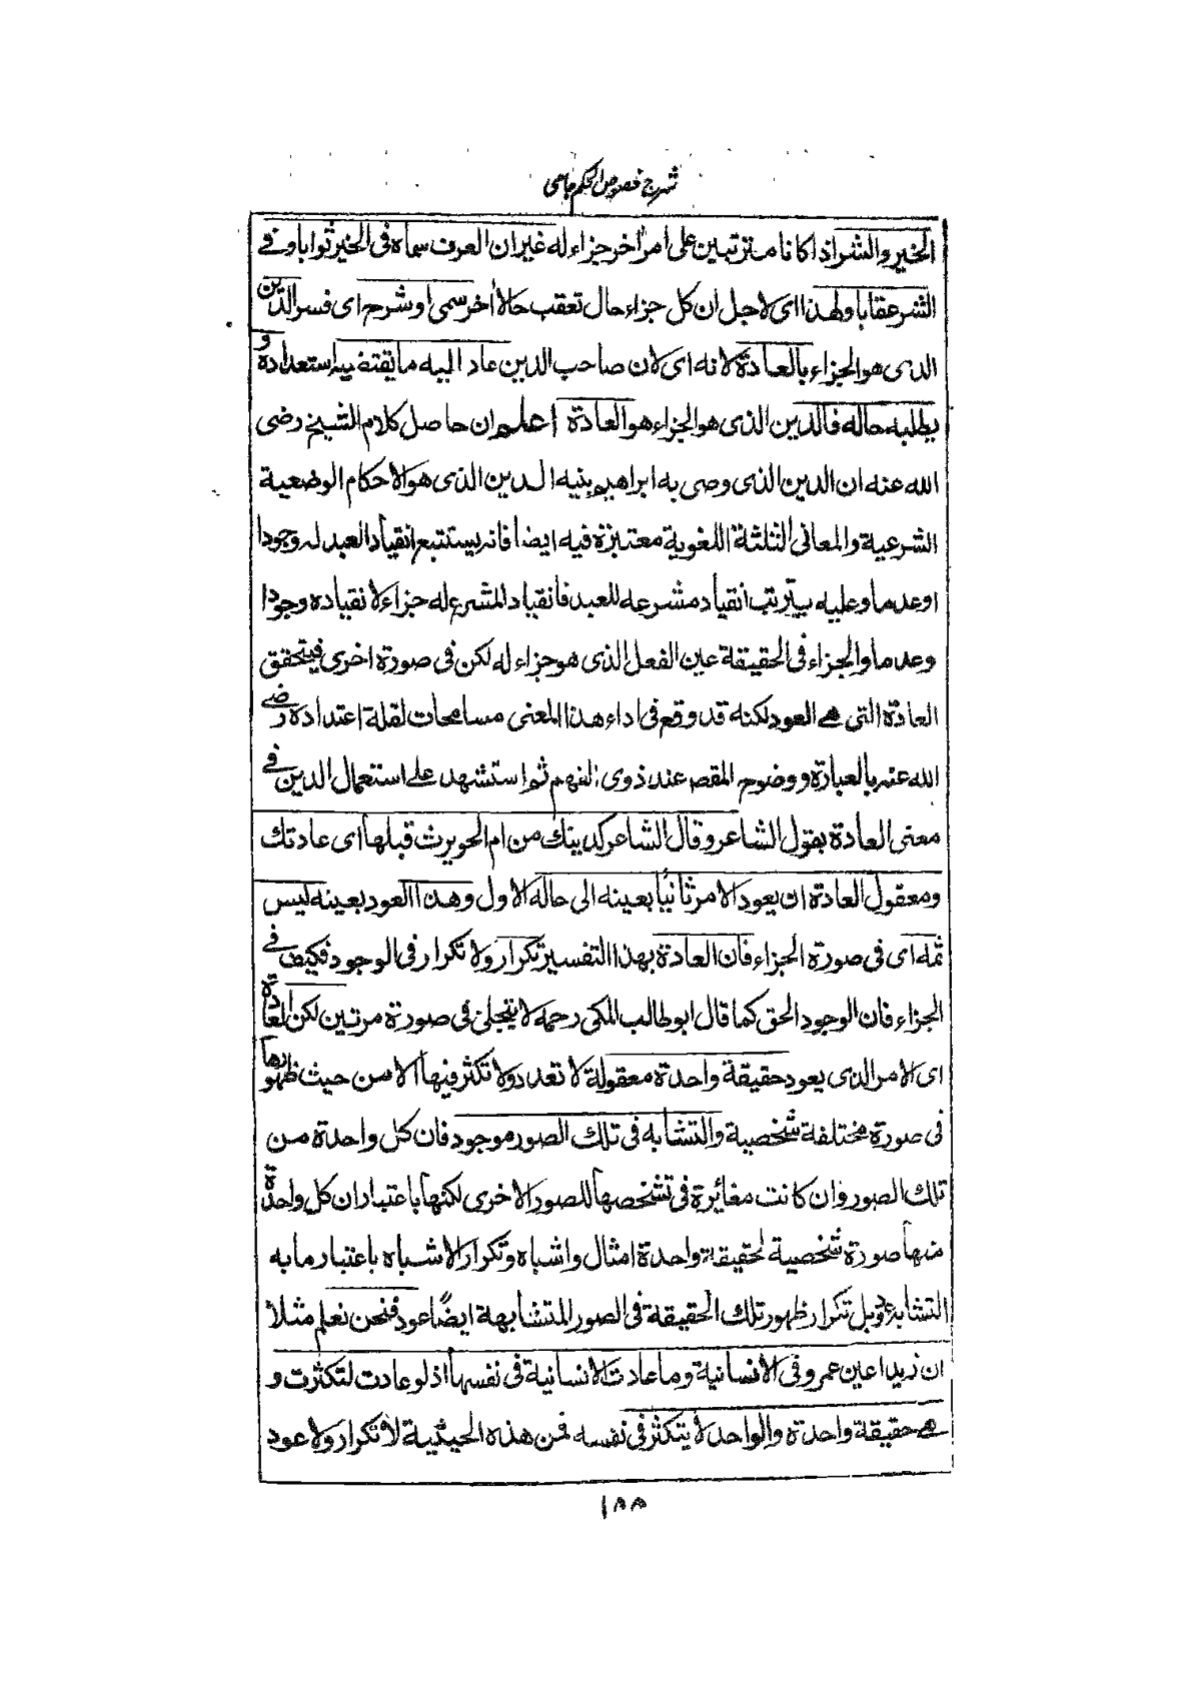 شرح فصوص الحكم جامى
الخير والشر اذا كانا مترتبين على امر اخر جزاء له غير ان العرف سماه فى الخير ثوابا وفى
الشر عقابا ولهذا اى لاجل ان كل جزاء حال تعقب حالا اخر سمى او شرح اى فسر الدين
الذى هو الجزاء بالعادة لانه اى لان صاحب الدين عاد اليه ما يقتضيه استعداده و
يطلبه حاله فالدين الذى هو الجزاء هو العادة اعلم ان حاصل كلام الشيخ رضى
الله عنه ان الدين الذى وصى به ابراهيم بنيه الدين الذى هو الاحكام الوضعية
الشرعية والمعانى الثلثة اللغوية معتبرة فيه ايضا فانه يستتبع انقياد العبد له وجودا
او عدما وعليه يترتب انقياد مشرعه للعبد فانقياد المشرع له جزاء لانقياده وجودا
وعدما والجزاء فى الحقيقة عين الفعل الذى هو جزاء له لكن فى صورة اخرى فيتحقق
العادة التى هى العود لكنه قد وقع فى اداء هذا المعنى مسامحات لقلة اعتداده رضى
الله عنه بالعبارة ووضوح المقصد عند ذوى الفهم ثم استشهد على استعمال الدين فى
معنى العادة بقول الشاعر وقال الشاعر كدينك من ام الحويرث قبلها اى عادتك
ومعقول العادة ان يعود الامر ثانيا بعينه الى حاله الاول وهذا العود بعينه ليس
ثمه اى فى صورة الجزاء فان العادة بهذا التفسير تكرار ولا تكرار فى الوجود فكيف فى
الجزاء فان الوجود الحق كما قال ابو طالب المكى رحمه لا يتجلى فى صورة مرتين لكن العادة
اى الامر الذى يعود حقيقة واحدة معقولة لا تعدد ولا تكثر فيها الا من حيث ظهورها
فى صورة مختلفة شخصية والتشابه فى تلك الصور موجود فان كل واحدة من
تلك الصور وان كانت مغائرة فى تشخصها للصور الاخرى لكنها باعتبار ان كل واحدة
منها صورة شخصية لحقيقة واحدة امثال واشباه وتكرار الاشباه باعتبار ما به
التشابه عود بل تكرار ظهور تلك الحقيقة فى الصور المتشابهة ايضا عود فنحن نعلم مثلا
ان زيدا عين عمرو فى الانسانية وما عادت الانسانية فى نفسها اذ لو عادت لتكثرت و
هى حقيقة واحدة والواحد لا يتكثر فى نفسه فمن هذه الحيثية لا تكرار ولا عود
١٥٥